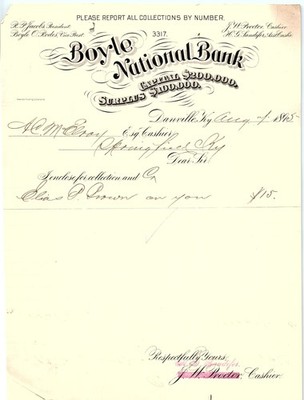 PLEASE REPORT ALL COLLECTIONS BY NUMBER.
R. P. Jacobs President
J. W. Proctor, Cashier
Boyle O. Rodes, Vice Prest.
3317.
Boyle
National Bank
CAPITAL $200,000.
SURPLUS $100,000.
Danville, Ky Aug 7 1895
A C McElroy
Esq Cashier
Springfield Ky
Dear Sir
I enclose for collection and Cr
Elias P Brown on you $15.
Respectfully Yours,
J. W. Proctor, Cashier.